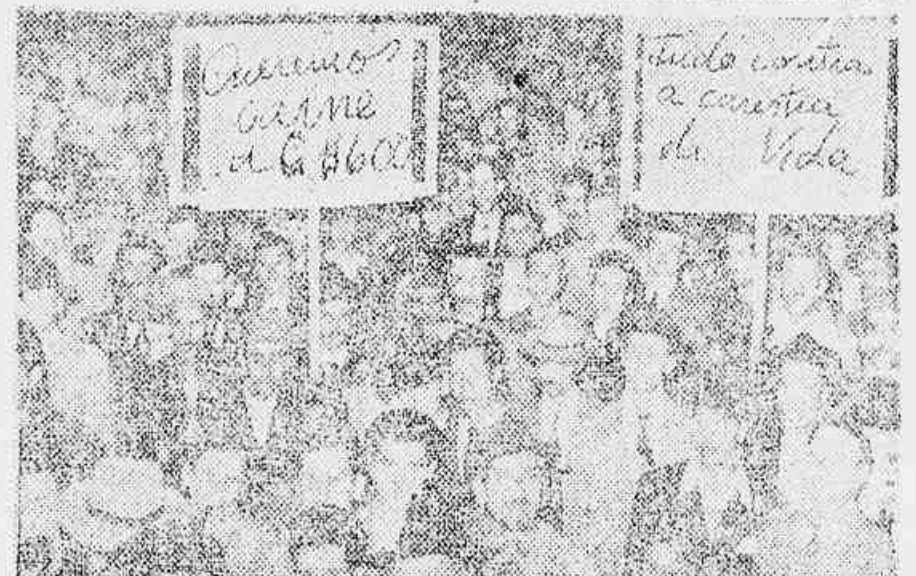 Queremos
carne
Tudo contra
a carestia
da Vida